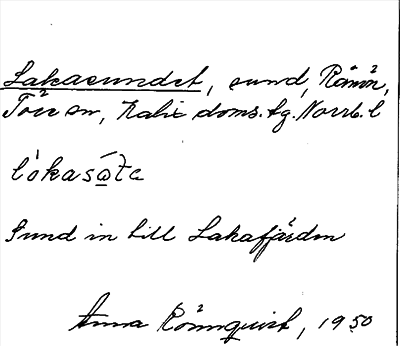 Lakasundet, sund, Rånön,
Töre sn, Kalix doms. tg. Norrb. l
lòkasó̲te
Sund in till Lakafjärden
Anna Rönnquist, 1950